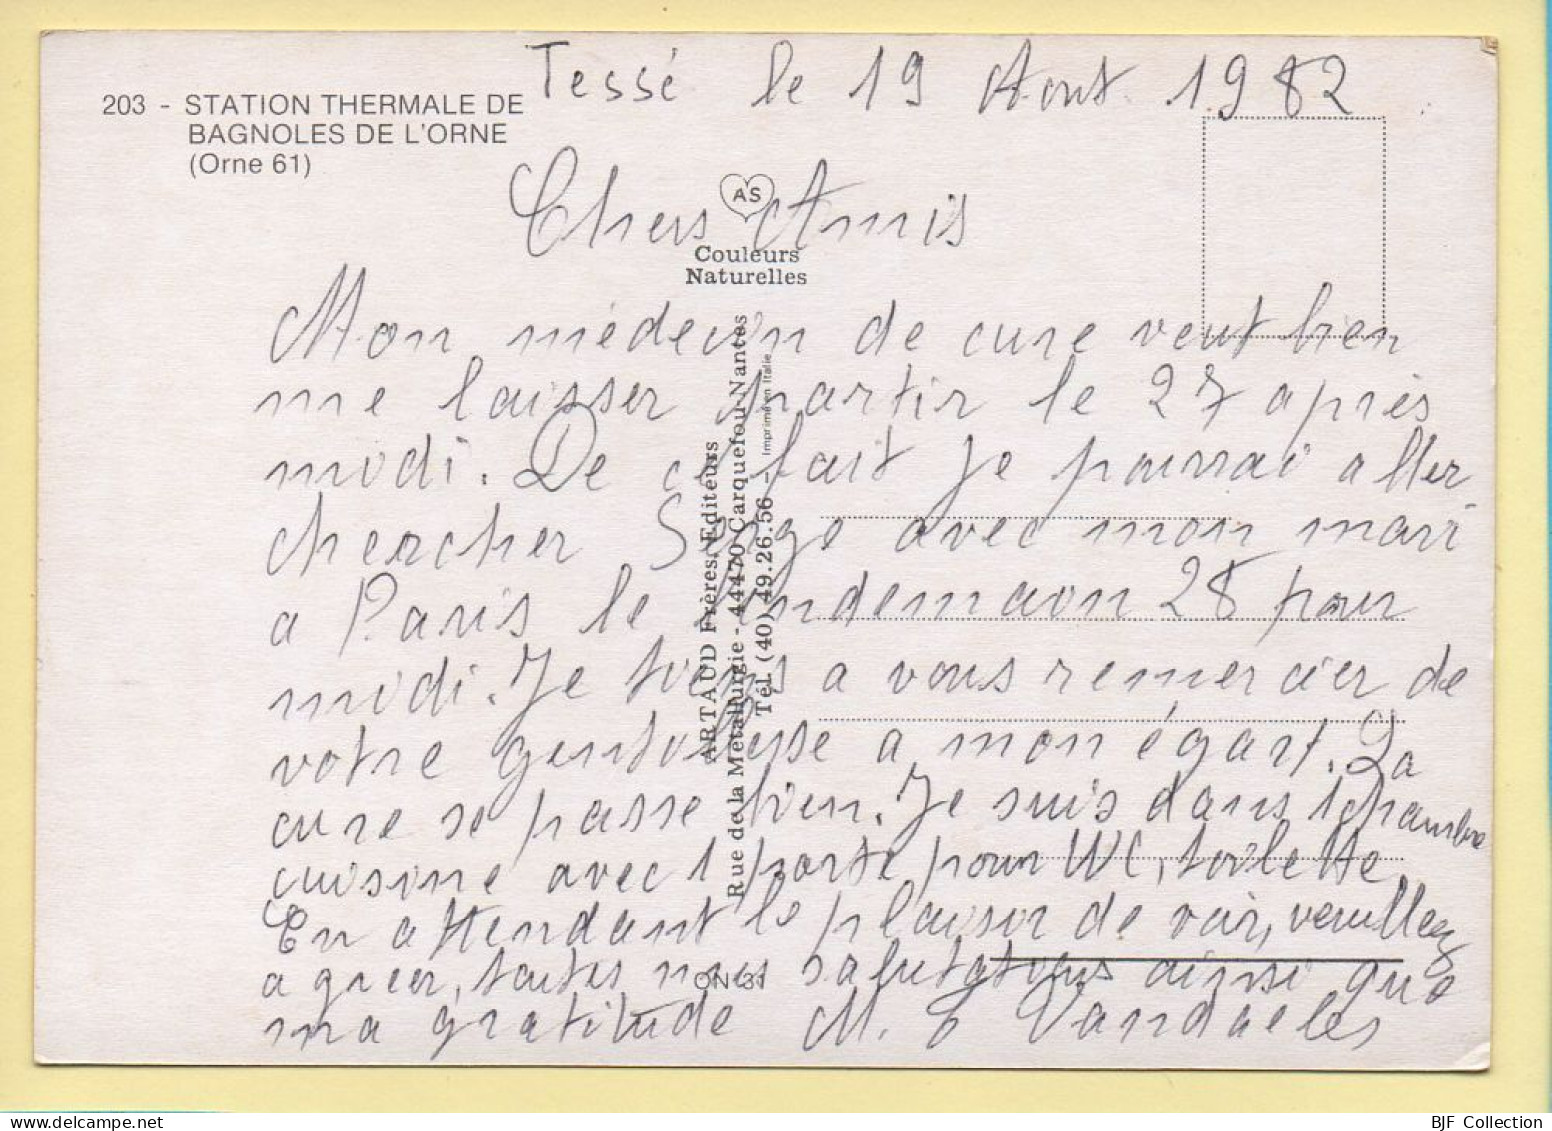 Tessé le 19 Aout 1982
203 - STATION THERMALE DE
BAGNOLES DE L'ORNE
(Orne 61)
AS
Couleurs
Naturelles
Chers Amis
Mon médecin de cure veut bien
me laisser partir le 27 après
midi. De ce fait je pourrai aller
chercher Serge avec mon mari
a Paris le lendemain 28 pour
midi. Je tiens a vous remercier de
votre gentillesse a mon égart. La
cure se passe bien. Je suis dans 1 chambre
cuisine avec 1 porte pour WC, toilette.
En attendant le plaisir de voir, veuillez
agréer, toutes nos salutations ainsi que
ma gratitude M. C Vandaeles
ARTAUD Frères Editeurs
Rue de la Métallurgie - 44470 Carquefou-Nantes
Tél (40) 49.26.56 - Imprimé en Italie
ON 31
BJF Collection